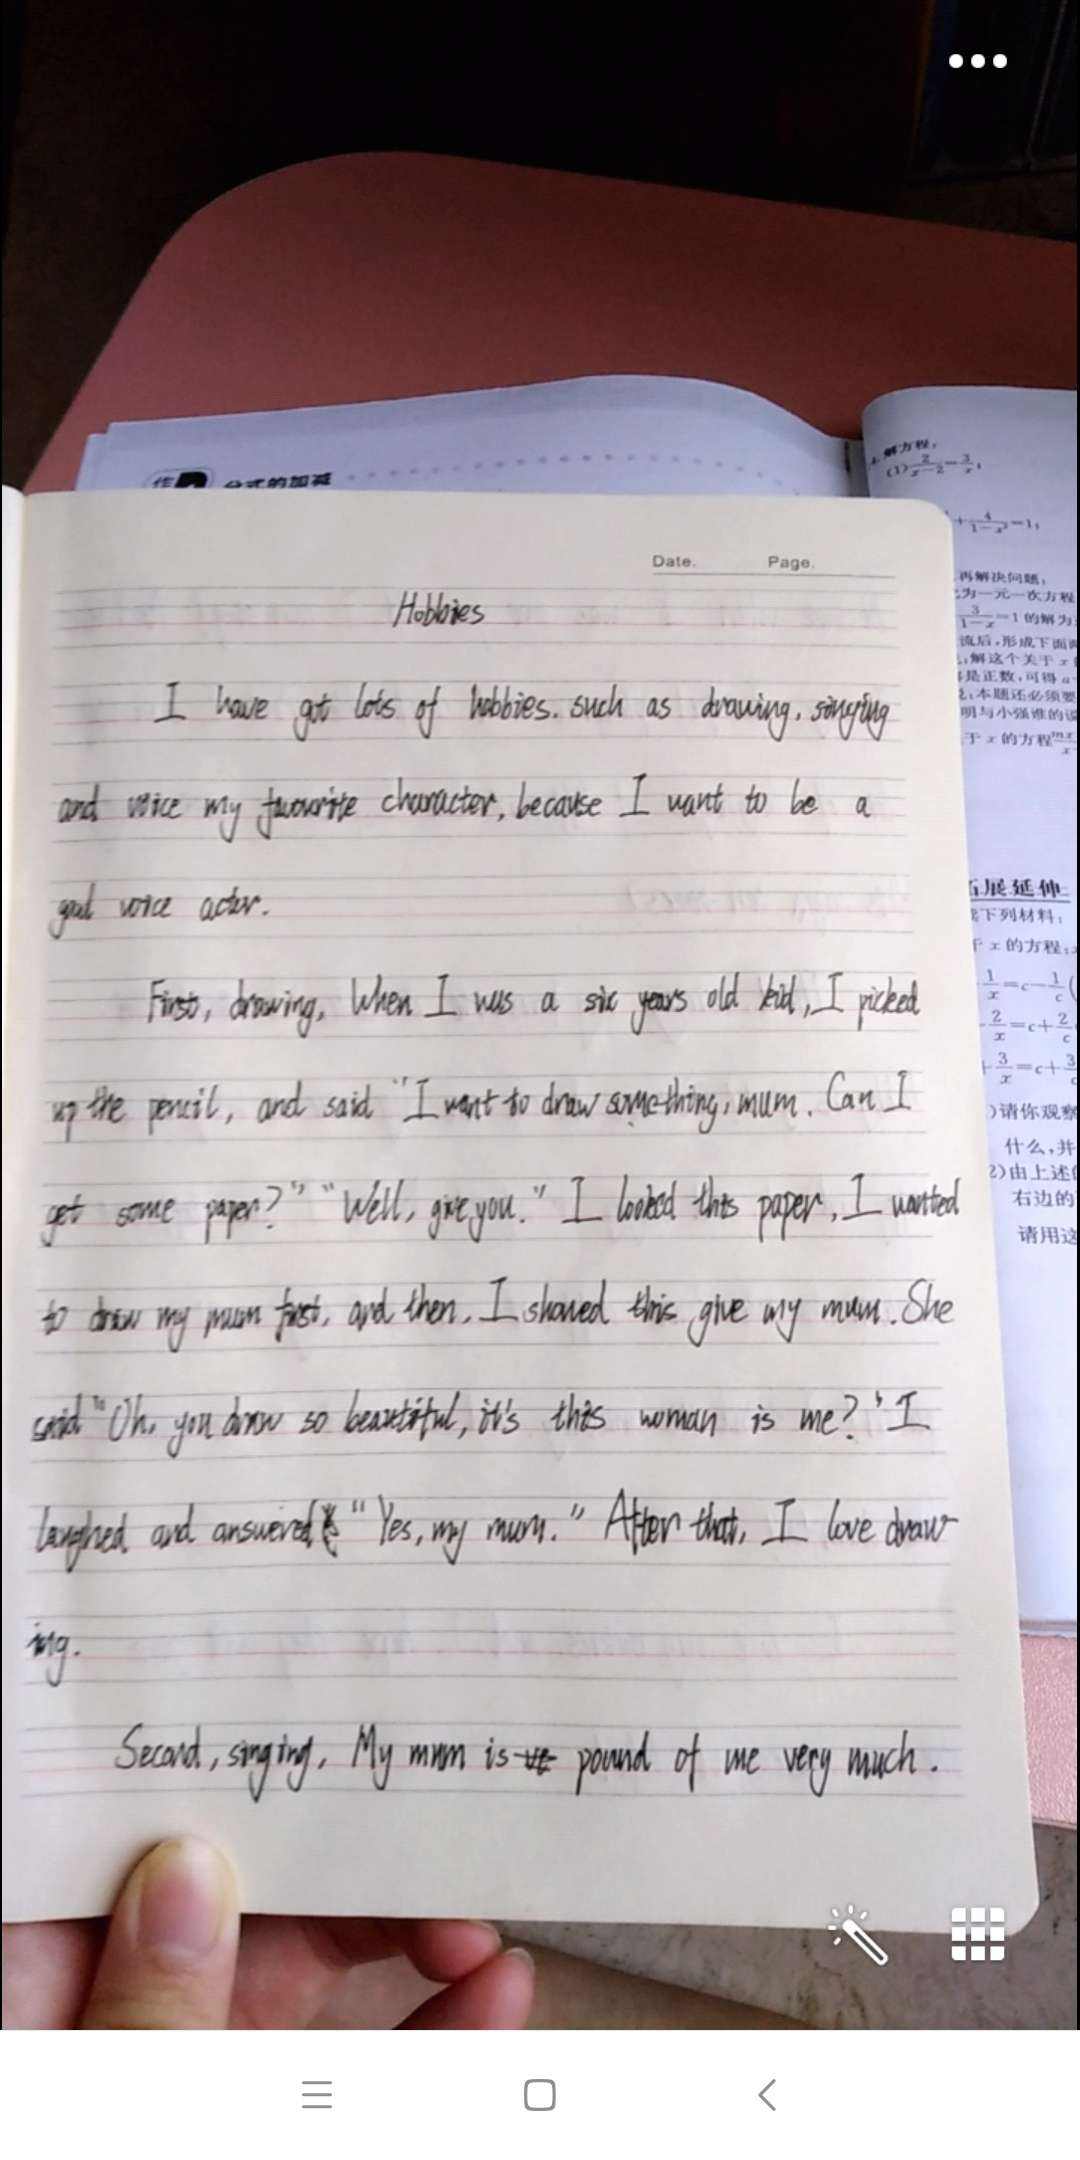 作 分式的加减
Date. Page.
Hobbies
I have got lots of hobbies. such as drawing, singing
and voice my favourite character, because I want to be a
good voice actor.
First, drawing, When I was a six years old kid, I picked
up the pencil, and said "I want to draw something, mum. Can I
get some paper?" "Well, give you." I looked this paper, I wanted
to draw my mum first, and then, I showed this give my mum. She
said "Oh, you draw so beautiful, it's this woman is me?" I
laughed and answered "Yes, my mum." After that, I love draw
ing.
Second, singing, My mum is pound of me very much.
解方程:
(1) 2/(x-2)=3/x;
+4/(1-x²)=1;
再解决问题:
为一元一次方程
3/(1-x)=1的解为
流后,形成下面
解这个关于x
是正数,可得a
本题还必须要
明与小强谁的说
于x的方程
拓展延伸
下列材料:
x的方程:
1/x=c-1/c
2/x=c+2/c
3/x=c+3/c
)请你观察
什么,并
2)由上述
右边的
请用这